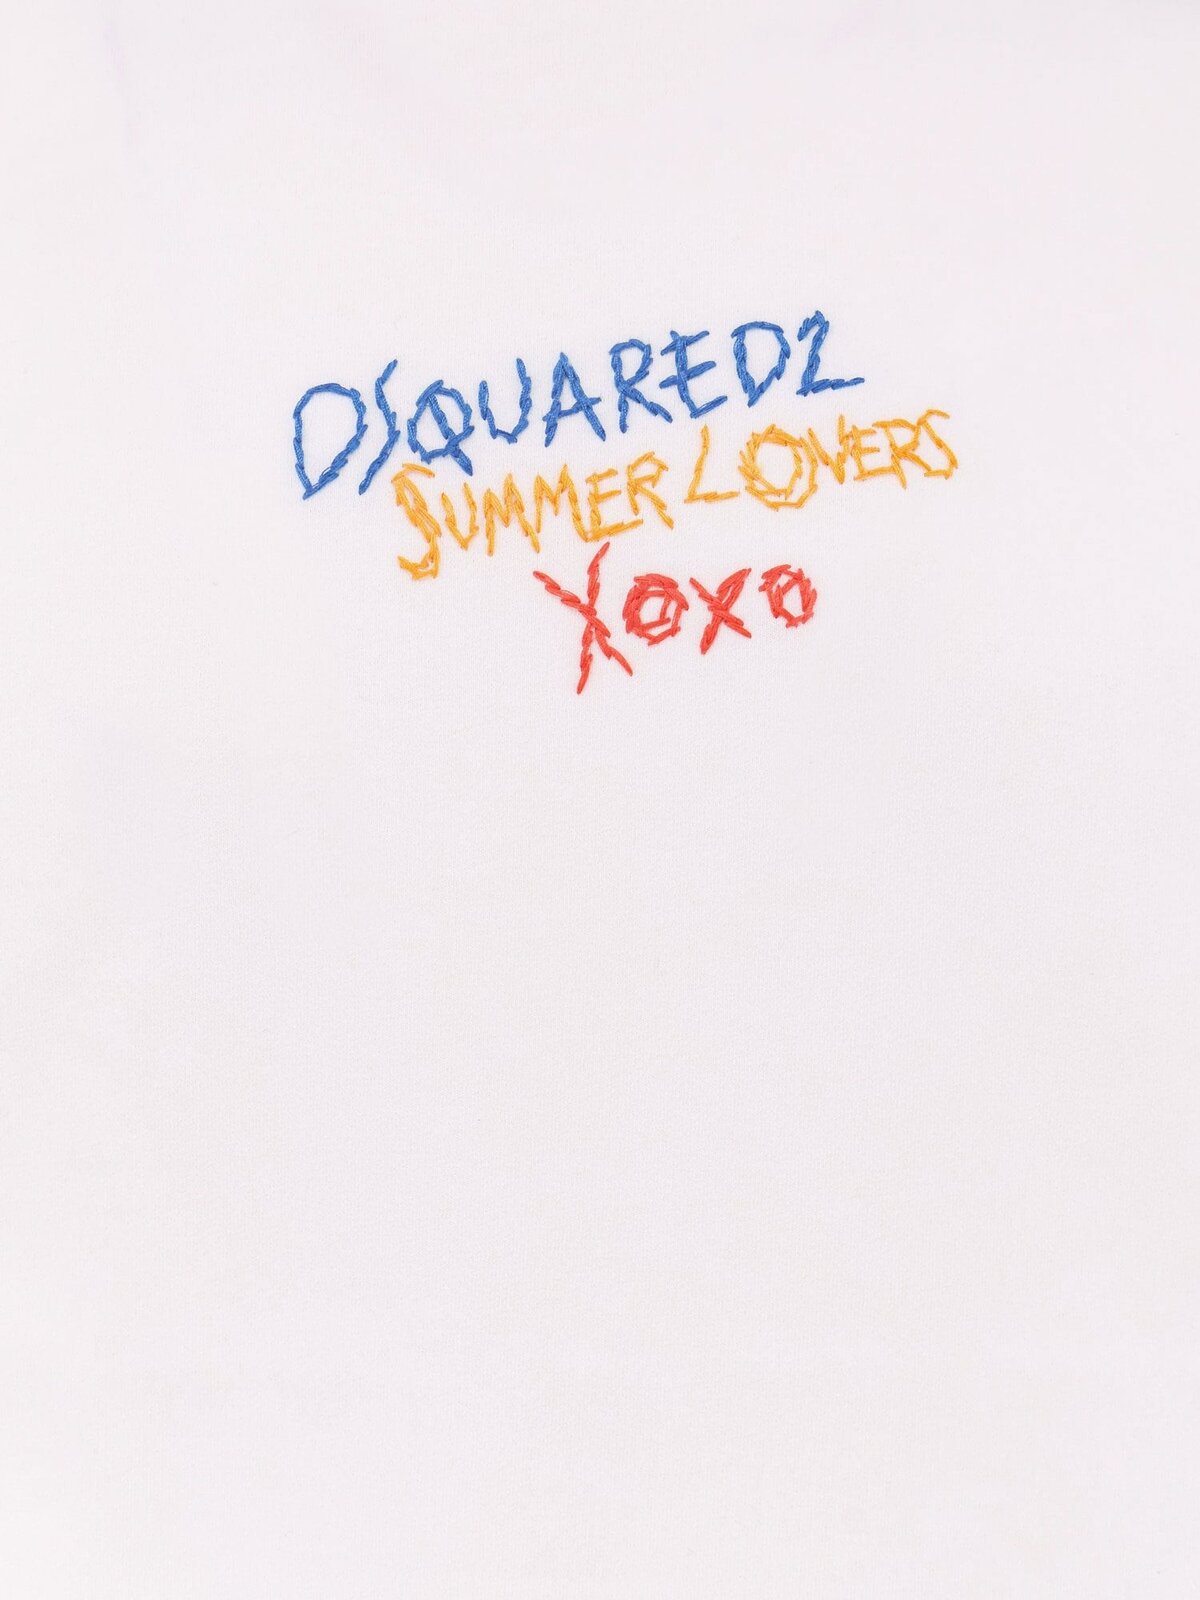 DSQUARED2
SUMMER LOVERS
XOXO